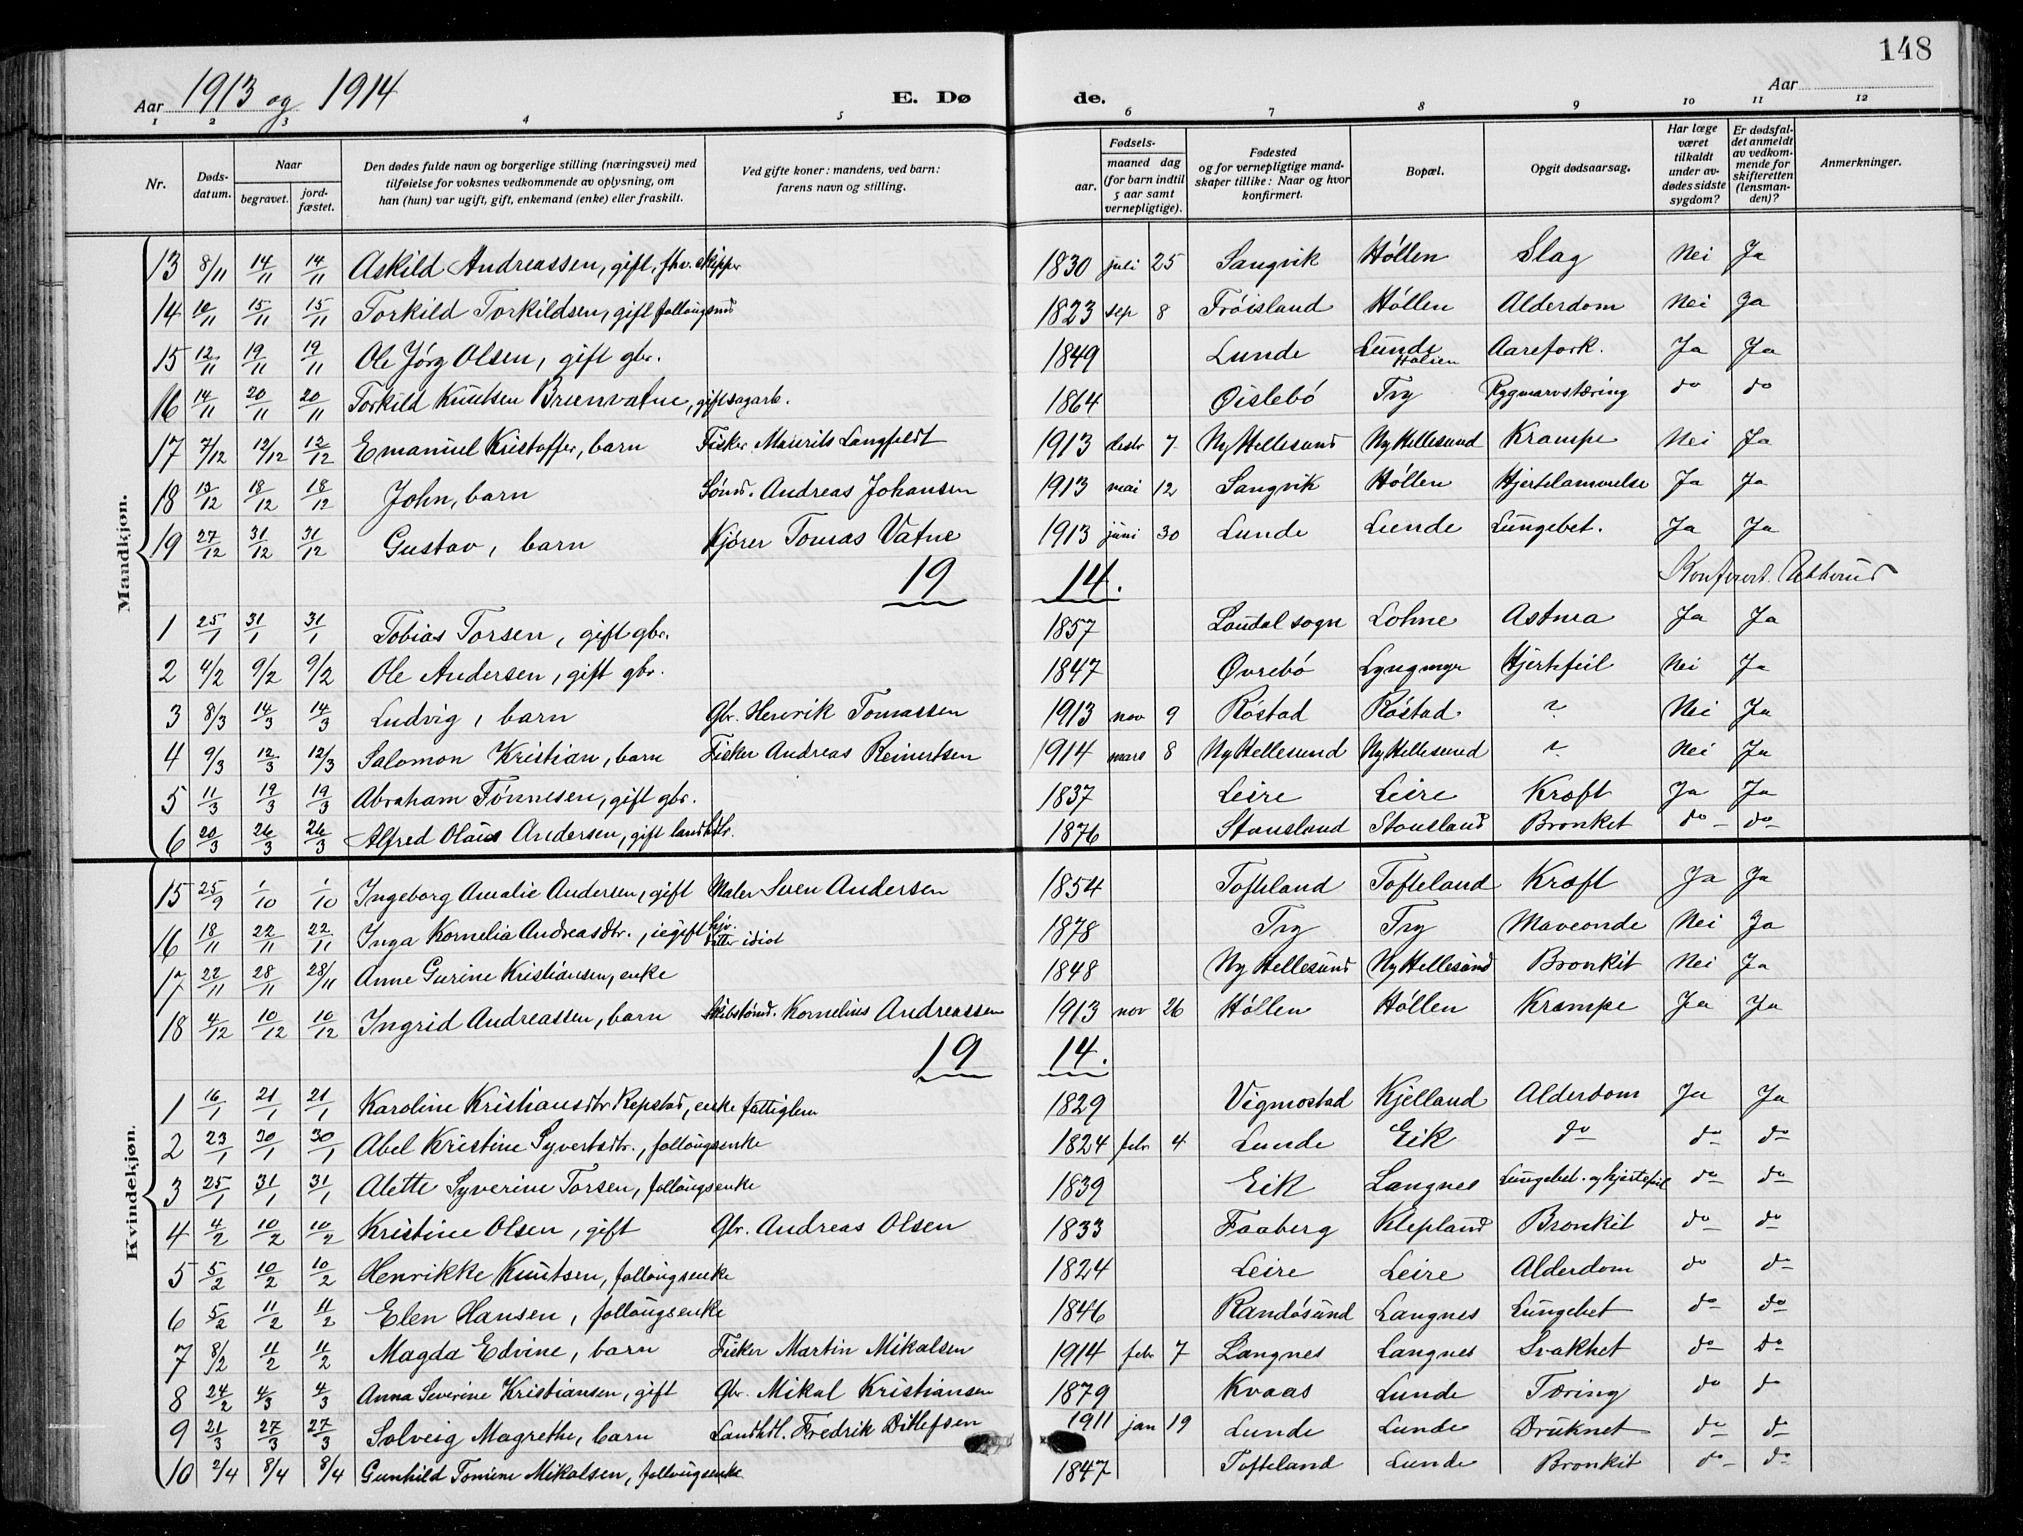 148
Aar 1913 og 1914 E. Døde. Aar
1 2 3 4 5 6 7 8 9 10 11 12
Nr.
Døds-datum.
Naar
begravet.
jord-fæstet.
Den dødes fulde navn og borgerlige stilling (næringsvei) med
tilføielse for voksnes vedkommende av oplysning, om
han (hun) var ugift, gift, enkemand (enke) eller fraskilt.
Ved gifte koner: mandens, ved barn:
farens navn og stilling.
Fødsels-
aar.
maaned dag
(for barn indtil
5 aar samt
vernepligtige).
Fødested
og for vernepligtige mand-
skaper tillike: Naar og hvor
konfirmert.
Bopæl.
Opgit dødsaarsag.
Har læge
været
tilkaldt
under av-
dødes sidste
sygdom?
Er dødsfal-
det anmeldt
av vedkom-
mende for
skifteretten
(lensman-
den)?
Anmerkninger.
Mandkjøn.
13 8/11 14/11 14/11 Askild Andreassen, gift, fhv. skipper 1830 juli 25 Sangvik Høllen Slag Nei Ja
14 10/11 15/11 15/11 Torkild Torkildsen, gift follougsmd 1823 sep 8 Frøisland Høllen Alderdom Nei Ja
15 12/11 19/11 19/11 Ole Jørg Olsen, gift gbr. 1849 Lunde Lunde Aarefork. Ja Ja
16 14/11 20/11 20/11 Torkild Knutsen Bruenvatne, gift sagarb. 1864 Øislebø Try Rygmarvstæring do do
17 7/12 12/12 12/12 Emanuel Kristoffer, barn Fisker Maurits Langfeldt 1913 desbr 7 Ny Hellesund Ny Hellesund Krampe Nei Ja
18 13/12 18/12 18/12 John, barn Sømd. Andreas Johansen 1913 mai 12 Sangvik Høllen Hjertelammelse Ja Ja
19 27/12 31/12 31/12 Gustav, barn Kjører Tomas Vatne 1913 juni 30 Lunde Lunde Lungebet. Ja Ja
19 14. Konferert.
1 25/1 31/1 31/1 Tobias Torsen, gift gbr. 1857 Laudal sogn Lohne Astma Ja Ja
2 4/2 9/2 9/2 Ole Andersen, gift gbr. 1847 Øvrebø Lyngmyr Hjertefeil Nei Ja
3 8/3 14/3 14/3 Ludvig, barn Gbr. Henrik Tomassen 1913 nov 9 Røstad Røstad ? Nei Ja
4 9/3 12/3 12/3 Salomon Kristian, barn Fisker Andreas Reinertsen 1914 mars 8 Ny Hellesund Ny Hellesund ? Nei Ja
5 11/3 19/3 19/3 Abraham Tønnesen, gift gbr. 1837 Leire Leire Kræft Ja Ja
6 20/3 26/3 26/3 Alfred Olaus Andersen, gift landhdlr. 1876 Stousland Stousland Bronket do do
Kvindekjøn.
15 25/9 1/10 1/10 Ingeborg Amalie Andersen, gift Maler Sven Andersen 1854 Tofteland Tofteland Kræft Ja Ja
16 18/11 22/11 22/11 Inga Kornelia Andreasdtr., ugift gbr. datter idiot 1878 Try Try Maveonde Nei Ja
17 22/11 28/11 28/11 Anne Gurine Kristiansen, enke 1848 Ny Hellesund Ny Hellesund Bronkit Nei Ja
18 4/12 10/12 10/12 Ingrid Andreassen, barn Skibstømd. Kornelius Andreassen 1913 nov 26 Høllen Høllen Krampe Ja Ja
19 14.
1 16/1 21/1 21/1 Karoline Kristiansdtr Repstad, enke fattiglem 1829 Vigmostad Kjelland Alderdom Ja Ja
2 23/1 30/1 30/1 Abel Kristine Syvertsdtr., follougsenke 1824 febr 4 Lunde Eik do do do
3 25/1 31/1 31/1 Alette Syverine Torsen, follougsenke 1839 Eik Langnes Lungebet. og hjertefeil do do
4 4/2 10/2 10/2 Kristine Olsen, gift Gbr. Andreas Olsen 1833 Faaberg Klepland Bronkit do do
5 5/2 10/2 10/2 Henrikke Knutsen, follougsenke 1824 Leire Leire Alderdom do do
6 5/2 11/2 11/2 Elen Hansen, follougsenke 1846 Randøsund Langnes Lungebet do do
7 8/2 11/2 11/2 Magda Edvine, barn Fisker Martin Mikalsen 1914 febr 7 Langnes Langnes Svakhet do do
8 24/2 4/3 4/3 Anna Severine Kristiansen, gift Gbr. Mikal Kristiansen 1879 Kvaas Lunde Tæring do do
9 21/3 27/3 27/3 Solveig Magrethe, barn Landhdl. Fredrik Ditlefsen 1911 jan 19 Lunde Lunde Druknet do do
10 2/4 8/4 8/4 Gunhild Tomine Mikalsen, follougsenke 1847 Tofteland Lunde Bronkit do do